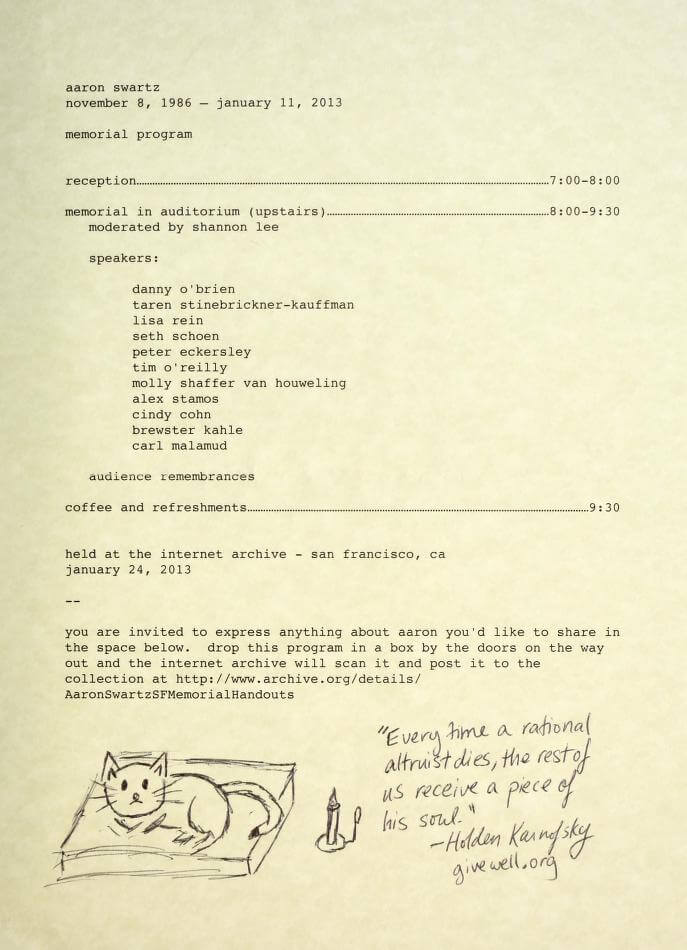 aaron swartz
november 8, 1986 — january 11, 2013
memorial program
reception……………………………………………………………………7:00-8:00
memorial in auditorium (upstairs)……………………………………8:00-9:30
moderated by shannon lee
speakers:
danny o'brien
taren stinebrickner-kauffman
lisa rein
seth schoen
peter eckersley
tim o'reilly
molly shaffer van houweling
alex stamos
cindy cohn
brewster kahle
carl malamud
audience remembrances
coffee and refreshments……………………………………………………9:30
held at the internet archive - san francisco, ca
january 24, 2013
--
you are invited to express anything about aaron you'd like to share in
the space below.  drop this program in a box by the doors on the way
out and the internet archive will scan it and post it to the
collection at http://www.archive.org/details/
AaronSwartzSFMemorialHandouts
"Every time a rational
altruist dies, the rest of
us receive a piece of
his soul."
-Holden Karnofsky
givewell.org